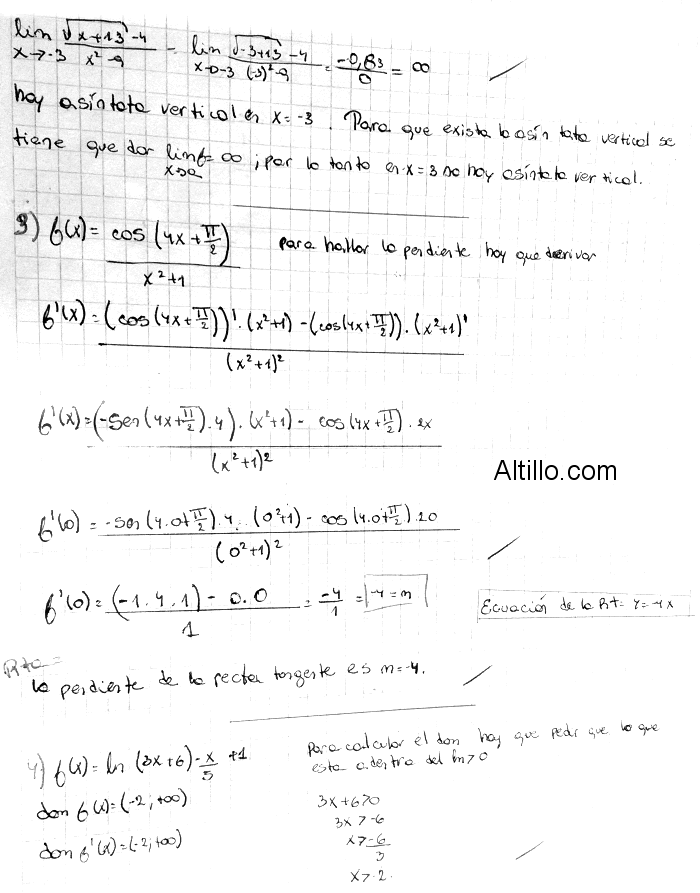 lim √(x+13) -4 / x² -9 = lim √(-3+13) -4 / (-3)² -9 = -0,83 / 0 = ∞
x→-3 x→-3
hay asíntota vertical en x=-3. Para que exista la asíntota vertical se
tiene que dar lim f= ∞, por lo tanto en x=3 no hay asíntota vertical.
x→a
3) f(x)= cos (4x+π/2) / x²+1 para hallar la pendiente hay que derivar
f'(x)= (cos(4x+π/2))'.(x²+1)-(cos(4x+π/2)).(x²+1)' / (x²+1)²
f'(x)=(-Sen(4x+π/2).4).(x²+1)- cos(4x+π/2).2x / (x²+1)²
Altillo.com
f'(0)= -sen(4.0+π/2).4.(0²+1)- cos(4.0+π/2).2.0 / (0²+1)²
f'(0)= (-1.4.1)- 0.0 / 1 = -4/1 = -4=m
Ecuación de la Rt= y=-4x
Rta=
la pendiente de la recta tangente es m=-4.
4) f(x)= ln (3x+6)-x/5 +1 Para calcular el dom hay que pedir que lo que
esta adentro del ln>0
dom f(x)=(-2;+∞) 3x+6>0
3x>-6
dom f'(x)=(-2;+∞) x>-6/3
x>-2.